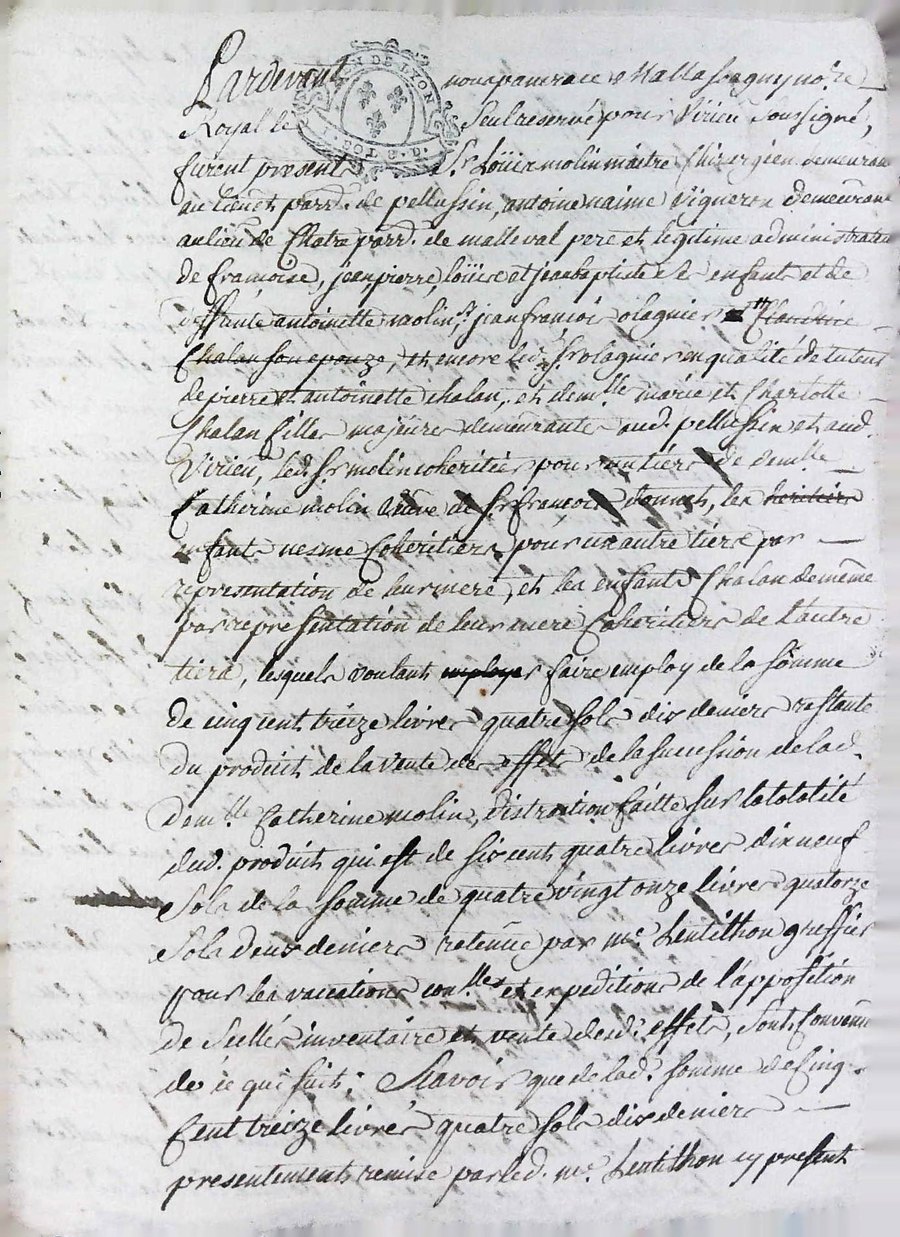 Pardevant nous pancrace Mallassagny no.re
Royal le Seul reservé pour Virieu Soussigné,
furent present Sr. Loüis molin maitre Chirurgien demeurant
au lieu et parr.e de pellussin, antoine naime Vigneron demeurant
au lieu de Chatre parr.e de malleval pere et legitime administrateur
de francoise, jean pierre, loüise et jean baptiste ses enfants et de
deffunte antoinette molin, Sr. jean francois olagnier et Claudine
Chalan son epouze, et encore led. Sr. olagnier en qualité de tuteur
de pierre et antoinette chalan, et dem.lle marie et Charlotte
Chalan filles majeures demeurantes aud. pellussin et aud.
Virieu, led. Sr. molin coheritier pour un tiers de dem.lle
Catherine molin Veuve de Sr. francois Donnet, les heritiers
enfants nesme Coheritiers pour un autre tiers par
representation de leur mere, et les enfants Chalan de même
par representation de leur mere Coheritiers de L'autre
tiers, lesquels voulant employer faire employ de la somme
de cinq cent treize livres quatre sols dix deniers restante
du produit de la vente des effets de la succession de lad.
dem.lle Catherine molin, distraction faitte sur la totalité
dud. produit qui est de six cent quatre livres dix neuf
Sols de la somme de quatre vingt onze livres quatorze
Sols deux deniers retenüe par me. Lentilhon greffier
pour les vacations con.lles et expeditions de l'apposition
de scellés inventaire et vente desd. effets, sont convenus
de ce qui suit; Scavoir que de lad. somme de Cinq
Cent treize livres quatre sols dix deniers
presentement remise par led. me. Lentilhon icy present